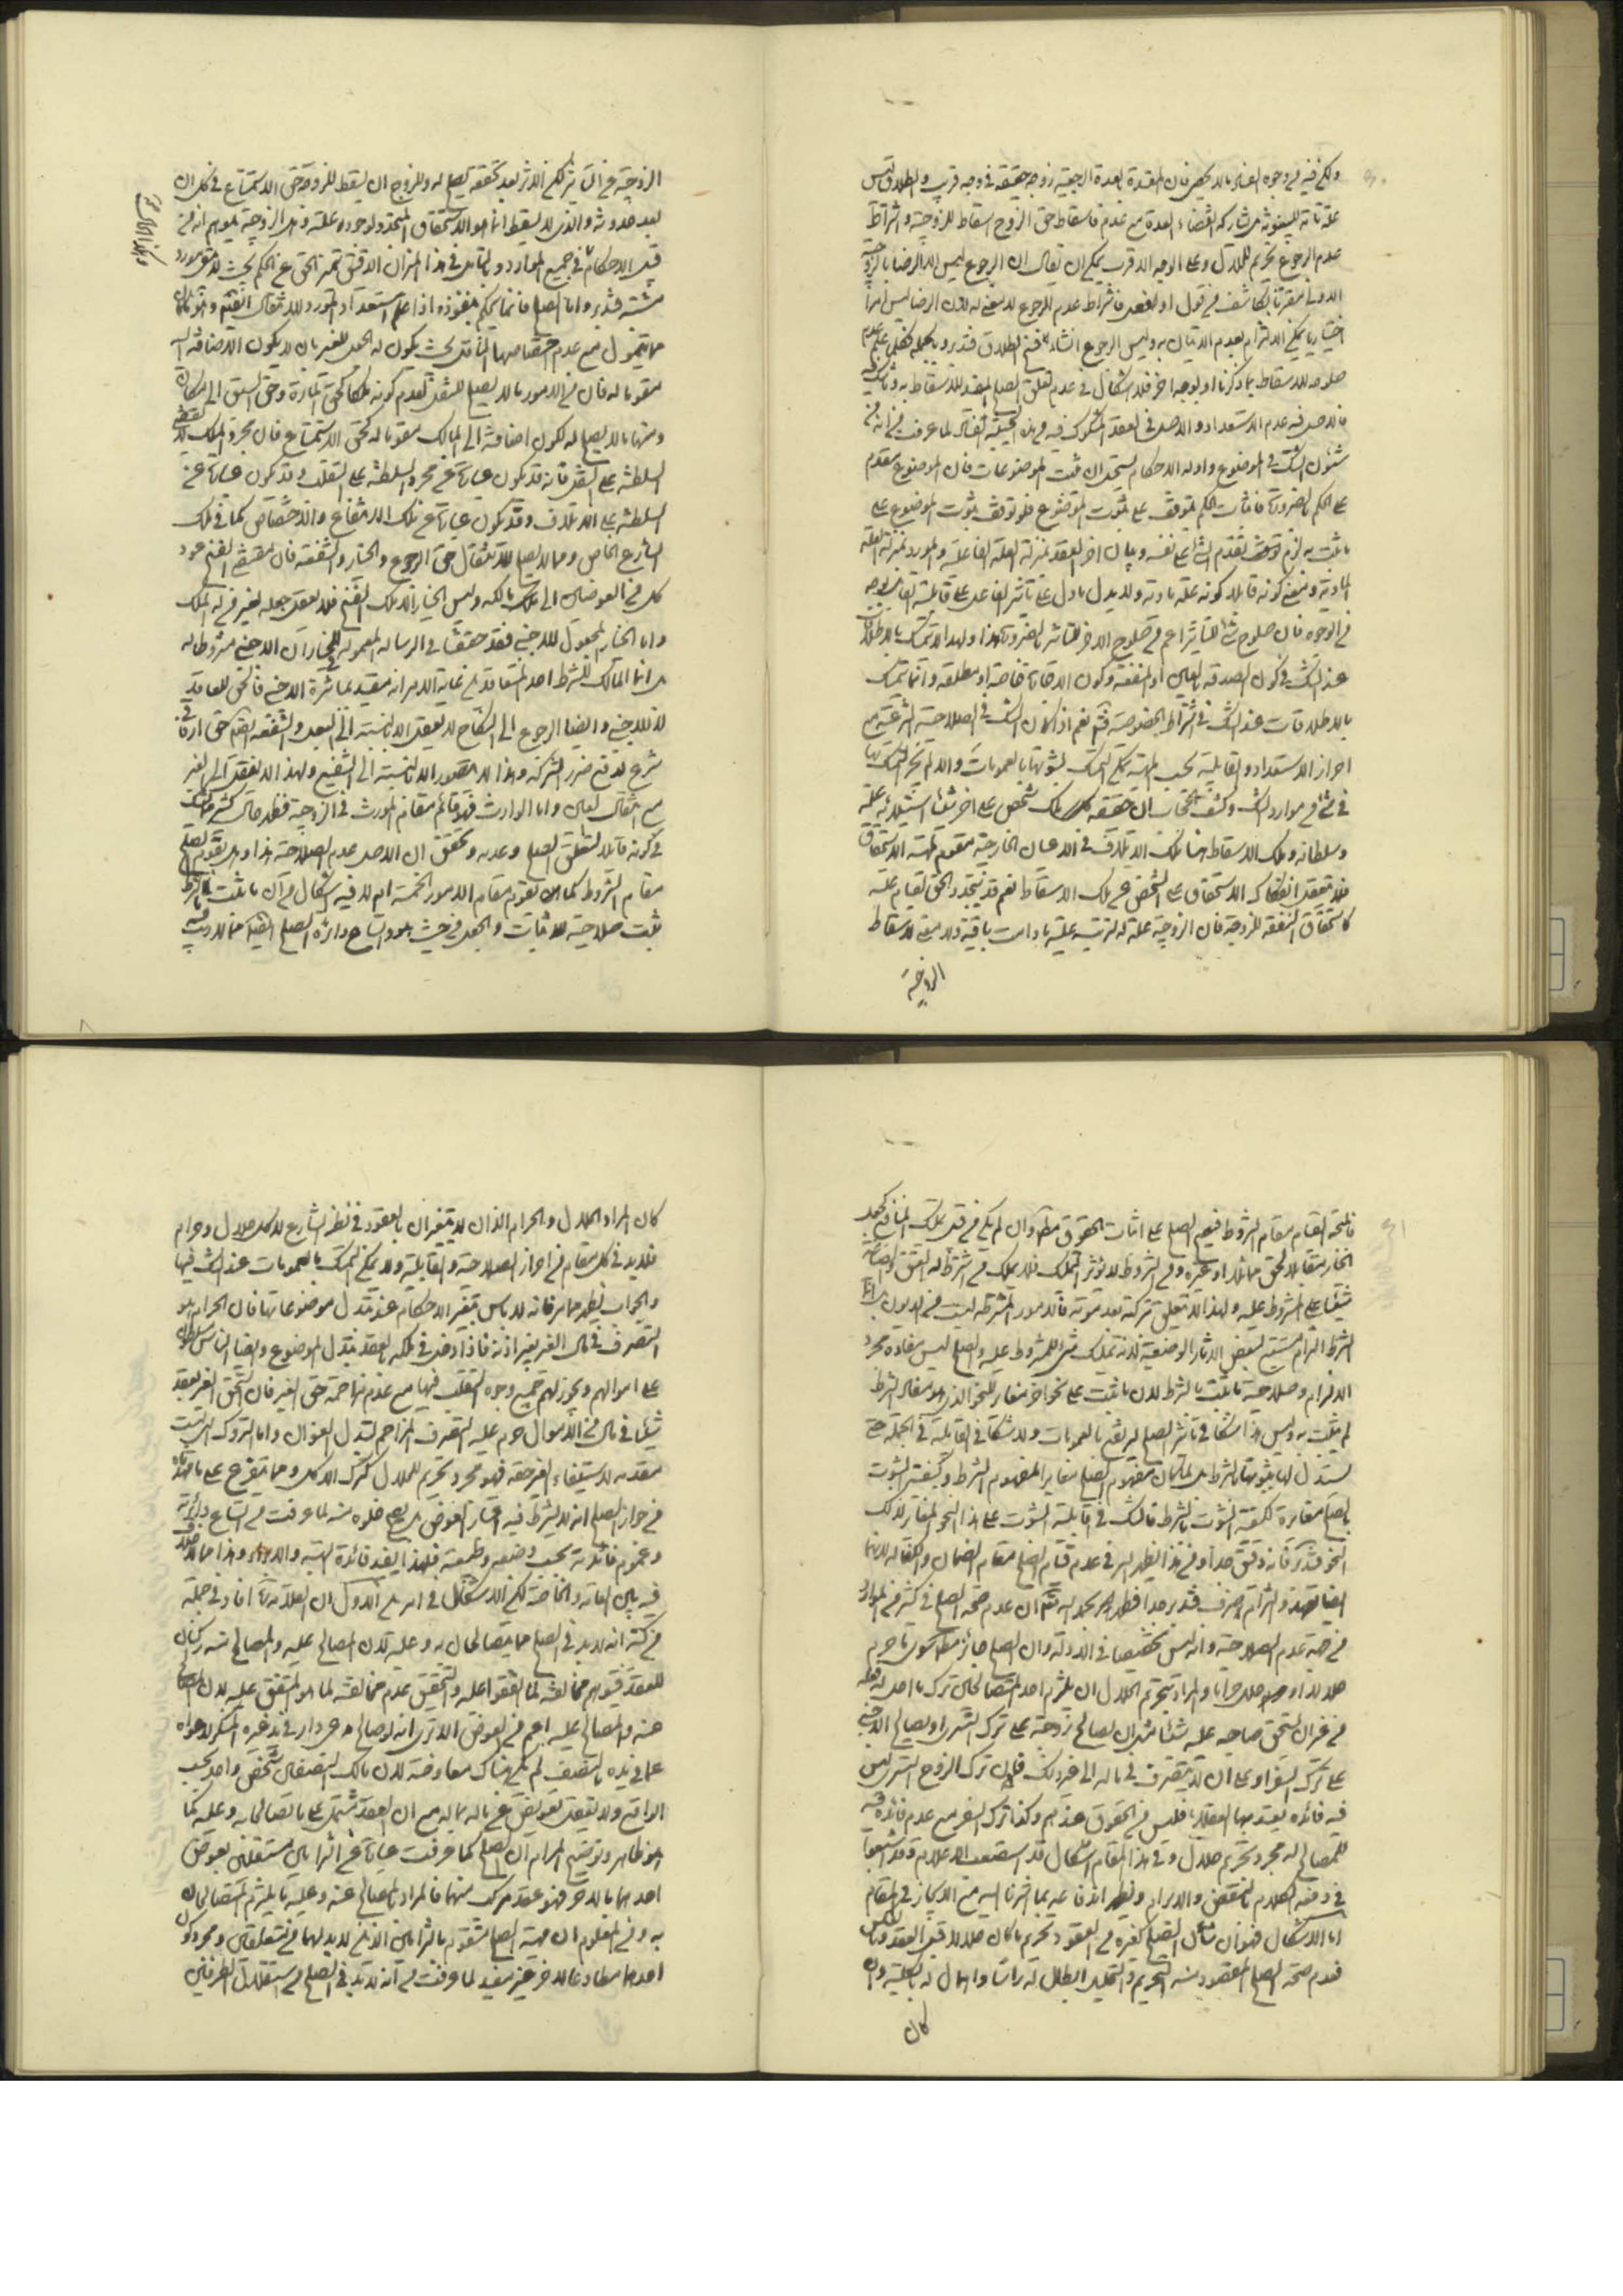 ولكن فيه من وجوه الفساد ما لا يخفى فان المعتدة بالعدة الرجعية زوجة حقيقة في وجه قريب والطلاق ليس
علة تامة للبينونة بل يشاركه انقضاء العدة مع عدم فاسقاط حق الزوج اسقاط للزوجية واشتراط
عدم الرجوع تحريم للحلال وعلى الوجه الاقرب يمكن ان يقال ان الرجوع ليس الا الرضا بالزوجية
الاولى مقرنا بكاشف من قول او فعل فاشتراط عدم الرجوع لا معنى له لان الرضا ليس امرا
اختياريا يمكن الالتزام بعدم الاتيان به وليس الرجوع انشاء لفسخ الطلاق فتدبر وبالجملة فكلما علم عدم
صلوحه للاسقاط بما ذكرنا او بوجه اخر فلا اشكال في عدم تعلق الصلح المفيد للاسقاط به وما شك فيه
فالاصل فيه عدم الاستعداد والاصل في العقد المشكوك فيه من هذه الحيثية الفساد لما عرفت من انه من
شئون الشك في الموضوع وادلة الاحكام يستحيل ان تثبت الموضوعات فان الموضوع مقدم
على الحكم بالضرورة فاثبات الحكم يتوقف على ثبوت الموضوع فلو توقف ثبوت الموضوع على
ما يثبت به لزم تقدم الشئ على نفسه وببيان اخر العقد بمنزلة العلة الفاعلية والمورد بمنزلة العلة
المادية ومعنى كونه قابلا كونه علة مادية ولا يدل ما دل على تاثير الفاعل على قابلية القابل بوجه
من الوجوه فان صلوح شئ للتاثير اعم من صلوح الاخر للتاثر بالضرورة هذا ولهذا لا يتمسك بالاطلاقات
عند الشك في كون الصدقة بالعين او المنفعة وكون الاوقات خاصة او مطلقة وانما يتمسك
بالاطلاقات عند الشك في اشتراط الخصوصية فتم نعم اذا كان الشك في الصلاحية الشرعية مع
احراز الاستعداد والقابلية بحسب المهية يمكن التمسك لثبوتها بالعمومات والا لم يجز التمسك بها
في شئ من موارد الشك وكشف الحجاب ان حقيقة ملك شخص على اخر شيئا استيلائه عليه
وسلطانه وملك الاسقاط هنا كملك الاتلاف في الاعيان الخارجية مقوم لمهية الاستحقاق
فلا يتعقل انفكاك الاستحقاق على الشخص عن ملك الاسقاط نعم قد يتجدد الحق لقيام علته
كاستحقاق النفقة للزوجة فان الزوجية علة له تترتب عليها ما دامت باقية ولا معنى لاسقاط
الزوجية
الزوجية عن ان تؤثر لكن الاثر بعد تحققه يصلح له وللزوج ان يسقط للزوجة حق الاستمتاع في كل ان
بعد حدوثه والذي لا يسقط انما هو الاستحقاق المتجدد لوجود علته وهي الزوجية فيتوهم انه من
قبيل الاحكام في جميع الموارد وبالتامل في هذا الميزان الدقيق تميز الحق عن الحكم بحيث لا يبقى مورد
مشتبه فتدبر واما الصلح فانما يحكم بنفوذه اذا علم استعداد المورد للانتقال
مما يتمول مع عدم اختصاصها بالناقل بحيث يكون له الجعل للغير بان لا يكون الاضافة اليه
مقومة له فان من الامور ما لا يصلح للنقل لعدم كونه ملكا كحق المارة وحق السبق الى مكان
ومنها ما لا يصلح له لكون اضافته الى المالك مقومة له كحق الاستمتاع فان مجرد الملك لا يقتضي
السلطنة على النقل فانه قد يكون عبارة عن مجرد السلطنة على التقلب وقد يكون عبارة عن
السلطنة على الاتلاف وقد يكون عبارة عن ملك الانتفاع والاختصاص كما في ملك
الشارع الخاص ومما لا يصلح للانتقال حق الرجوع والخيار والشفعة فان مقتضى الفسخ عود
كل من العوضين الى مالكه وليس الخيار الا ملك الفسخ فلا يعقل جعله لغير من له الملك
واما الخيار المجعول للاجنبي فقد حققنا في الرسالة المعمولة للخيار ان الاجنبي مشروط له
وانما المالك للشرط احد المتعاقدين غاية الامر انه مقيد بمباشرة الاجنبي فالحق للعاقد
لا للاجنبي وايضا الرجوع الى النكاح لا يعقل الا بالنسبة الى البعل والشفعة ايضا حق ارفاقي
شرع لدفع ضرر الشركة وهذا لا يتصور الا بالنسبة الى الشفيع ولهذا لا ينتقل الى الغير
مع انتقال العين واما الوارث فهو قائم مقام المورث في الزوجية فظهر حال كثير مما شك
في كونه قابلا لتعلق الصلح وعدمه وتحقق ان الاصل عدم الصلاحية هذا وهل يقوم الصلح
مقام الشروط كما يقوم مقام الامور الخمسة ام لا فيه اشكال من ان ما ثبت بالشرط
يثبت صلاحيته للاثبات والجعل من حيث هو واتساع دائرة الصلح ايضا مما لا ريب فيه
فالمتجه القيام مقام الشروط فيصح الصلح على اثبات الحقوق مطلقا وان لم يكن من قبيل تمليك المنافع كجعل
الخيار مقابلا لحق مماثل او غيره ومن الشروط لا تؤثر التملك فلا يملك من اشترط له العتق والصدقة
شيئا على المشروط عليه ولهذا لا يتعلق بتركته بعد موته فالامور المشترطة ليست من الديون
الشرط التزام مستتبع لبعض الاثار الوضعية لا انه تمليك شئ للمشروط عليه والصلح ليس مفاده مجرد
الالتزام وصلاحية ما يثبت بالشرط لان يثبت على نحو اخر مغاير للنحو الذي هو مفاد الشرط
لم يثبت به وليس هذا شكا في تاثير الصلح ليرتفع بالعمومات ولا شكا في القابلية في الجملة حتى
يستدل لها بثبوتها بالشرط بل لما كان مفهوم الصلح مغايرا لمفهوم الشرط وكيفية الثبوت
بالصلح مغايرة لكيفية الثبوت بالشرط فالشك في قابلية الثبوت على هذا النحو المغاير لذلك
النحو فتدبر فانه دقيق جدا ومن هذا يظهر السر في عدم قيام الصلح مقام الضمان والكفالة لانهما
ايضا تعهد والتزام صرف فتدبر جدا فظهر بحمد الله ان عدم صحة الصلح في كثير من الموارد
من جهة عدم الصلاحية وانه ليس تخصيصا في الادلة وان الصلح جائز مطلقا سوى ما حرم
حلالا او حلل حراما والمراد بتحريم الحلال ان يلتزم احد المتصالحين ترك ما احل له فعله
من غير ان يستحق صاحبه عليه شيئا مثل ان يصالح زوجته على ترك التسري او يصالح الاجنبي
على ترك السفر او على ان لا يتصرف في ماله الى غير ذلك فان ترك الزوج التسري ليس
فيه فائدة يعتد بها العقلاء فليس من الحقوق عندهم وكذا ترك السفر مع عدم فائدة فيه
للمصالح له مجرد تحريم حلال وفي هذا المقام اشكال قد استصعبه الاعلام وقد اشبعنا
في دفعه الكلام بالنقض والابرام ويظهر اندفاعه بما اشرنا اليه مع الايجاز في المقام
اما الاشكال فهو ان شان الصلح كغيره من العقود تحريم ما كان حلالا قبل العقد وبالعكس
فعدم صحة الصلح المقصود منه التحريم والتحليل ابطال له راسا واهمال له بالكلية وان
كان
كان المراد الحلال والحرام الذان لا يتغيران بالعقود في نظر الشارع لا كل حلال وحرام
فلا بد في كل مقام من احراز الصلاحية والقابلية ولا يمكن التمسك بالعمومات عند الشك فيها
والجواب يظهر مما مر فانه لا باس بتغير الاحكام عند تبدل موضوعاتها فان الحرام هو
التصرف في مال الغير بغير اذنه فاذا دخل في ملكه بالعقد تبدل الموضوع وايضا الناس مسلطون
على اموالهم ويجوز لهم جميع وجوه التقلب فيها مع عدم مزاحمة حق الغير فان استحق الغير بعقد
شيئا في مال من الاموال حرم عليه التصرف المزاحم لتبدل العنوان واما التروك التي ليست
مقدمة لاستيفاء الغير حقه فهو مجرد تحريم للحلال كترك الاكل ومما يتفرع على ما بيناه
من جواز الصلح انه لا يشترط فيه اعتبار العوض بل يصح خلوه منه لما عرفت من اتساع دائرته
وعموم فائدته بحسب وضعه وطبعه فلهذا يفيد فائدة الهبة والابراء وهذا مما لا خلاف
فيه بين العامة والخاصة لكن الاشكال في امرين الاول ان العلامة افاد في جملة
من كتبه انه لا بد في الصلح مما يتصالحان به وعليه لان المصالح عليه والمصالح عنه ركنان
للعقد فيتوهم مخالفته لما اتفقوا عليه والتحقيق عدم مخالفته لما هو المتفق عليه لان المصالح
عنه والمصالح عليه اعم من العوض الا ترى انه لو صالح عن دار في يد غيره المنكر لدعواه
على ما في يده بالنصف لم يكن هناك معاوضة لان مالك النصفين شخص واحد بحسب
الواقع ولا يعقل تعويض عن ماله بماله مع ان العقد مشتمل على ما تصالحا به وعليه كما
هو ظاهر وتوضيح المرام ان الصلح كما عرفت عبارة عن التزامين مستقلين يعوض
احدهما بالاخر فهو عقد مركب منهما فالمراد بالمصالح عنه وعليه ما يلتزم المتصالحان
به ومن المعلوم ان مهية الصلح متقوم بالتزامين الذين لا بد لهما من متعلقين ومجرد كون
احدهما مطاوعا للاخر غير مفيد لما عرفت من انه لا بد في الصلح من استقلال الطرفين